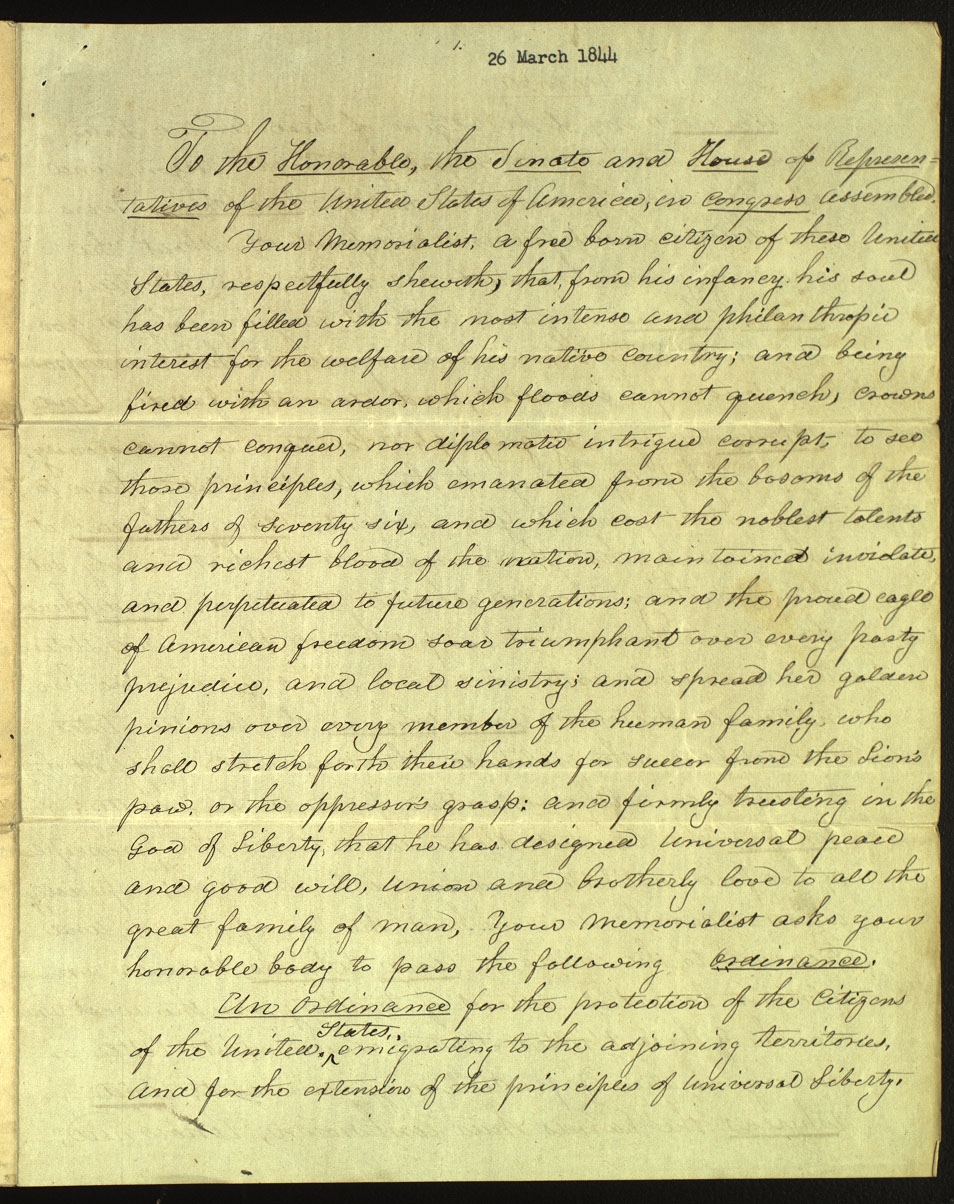 1.
26 March 1844
To the Honorable, the Senate and House of Represen=
tatives of the United States of America, in Congress assembled.
Your Memorialist, a free born citizen of these United
States, respectfully sheweth, that, from his infancy his soul
has been filled with the most intense and philanthropic
interest for the welfare of his native country; and being
fired with an ardor, which floods cannot quench, crowns
cannot conquer, nor diplomatic intrigue corrupt, to see
those principles, which emanated from the bosoms of the
fathers of seventy six, and which cost the noblest talents
and richest blood of the nation, maintained inviolate,
and perpetuated to future generations; and the proud eagle
of American freedom soar triumphant over every party
prejudice, and local sinistry; and spread her golden
pinions over every member of the human family, who
shall stretch forth their hands for succor from the Lion's
paw, or the oppressor's grasp: and firmly trusting in the
God of Liberty, that he has designed Universal peace
and good will, Union and brotherly love to all the
great family of man, Your Memorialist asks your
honorable body to pass the following Ordinance.
An Ordinance for the protection of the Citizens
of the United States, emigrating to the adjoining territories,
and for the extension of the principles of universal Liberty.